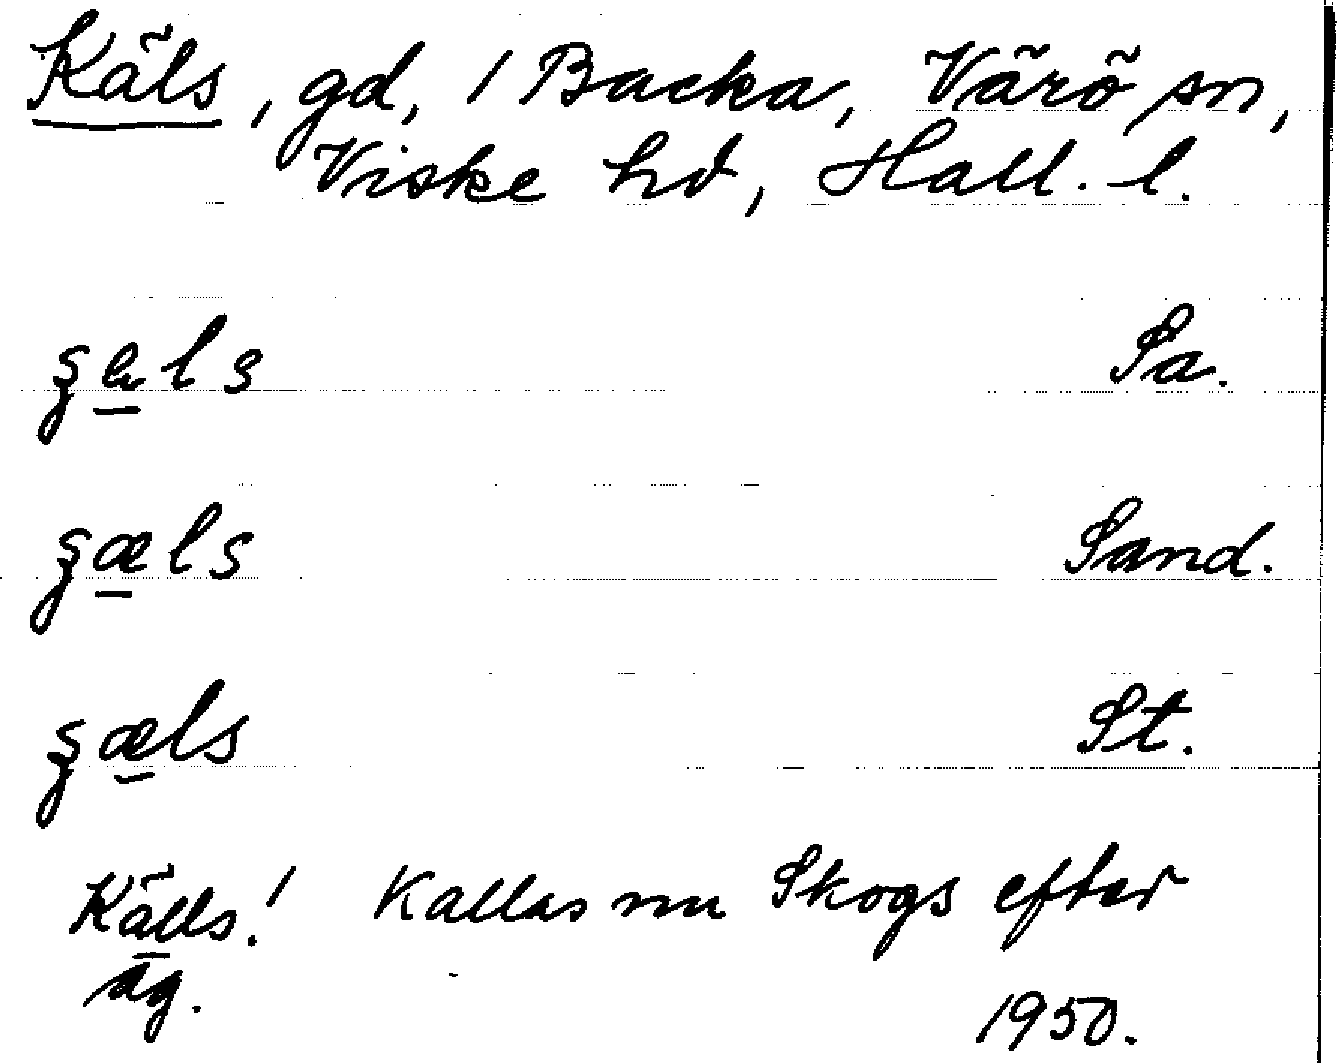 Käls, gd, 1 Backa, Värö sn,
Viske hd, Hall. l.
ʂæls Sa.
ʂæls Sand.
ʂæls St.
Källs! Kallas nu Skogs efter
äg. 1950.